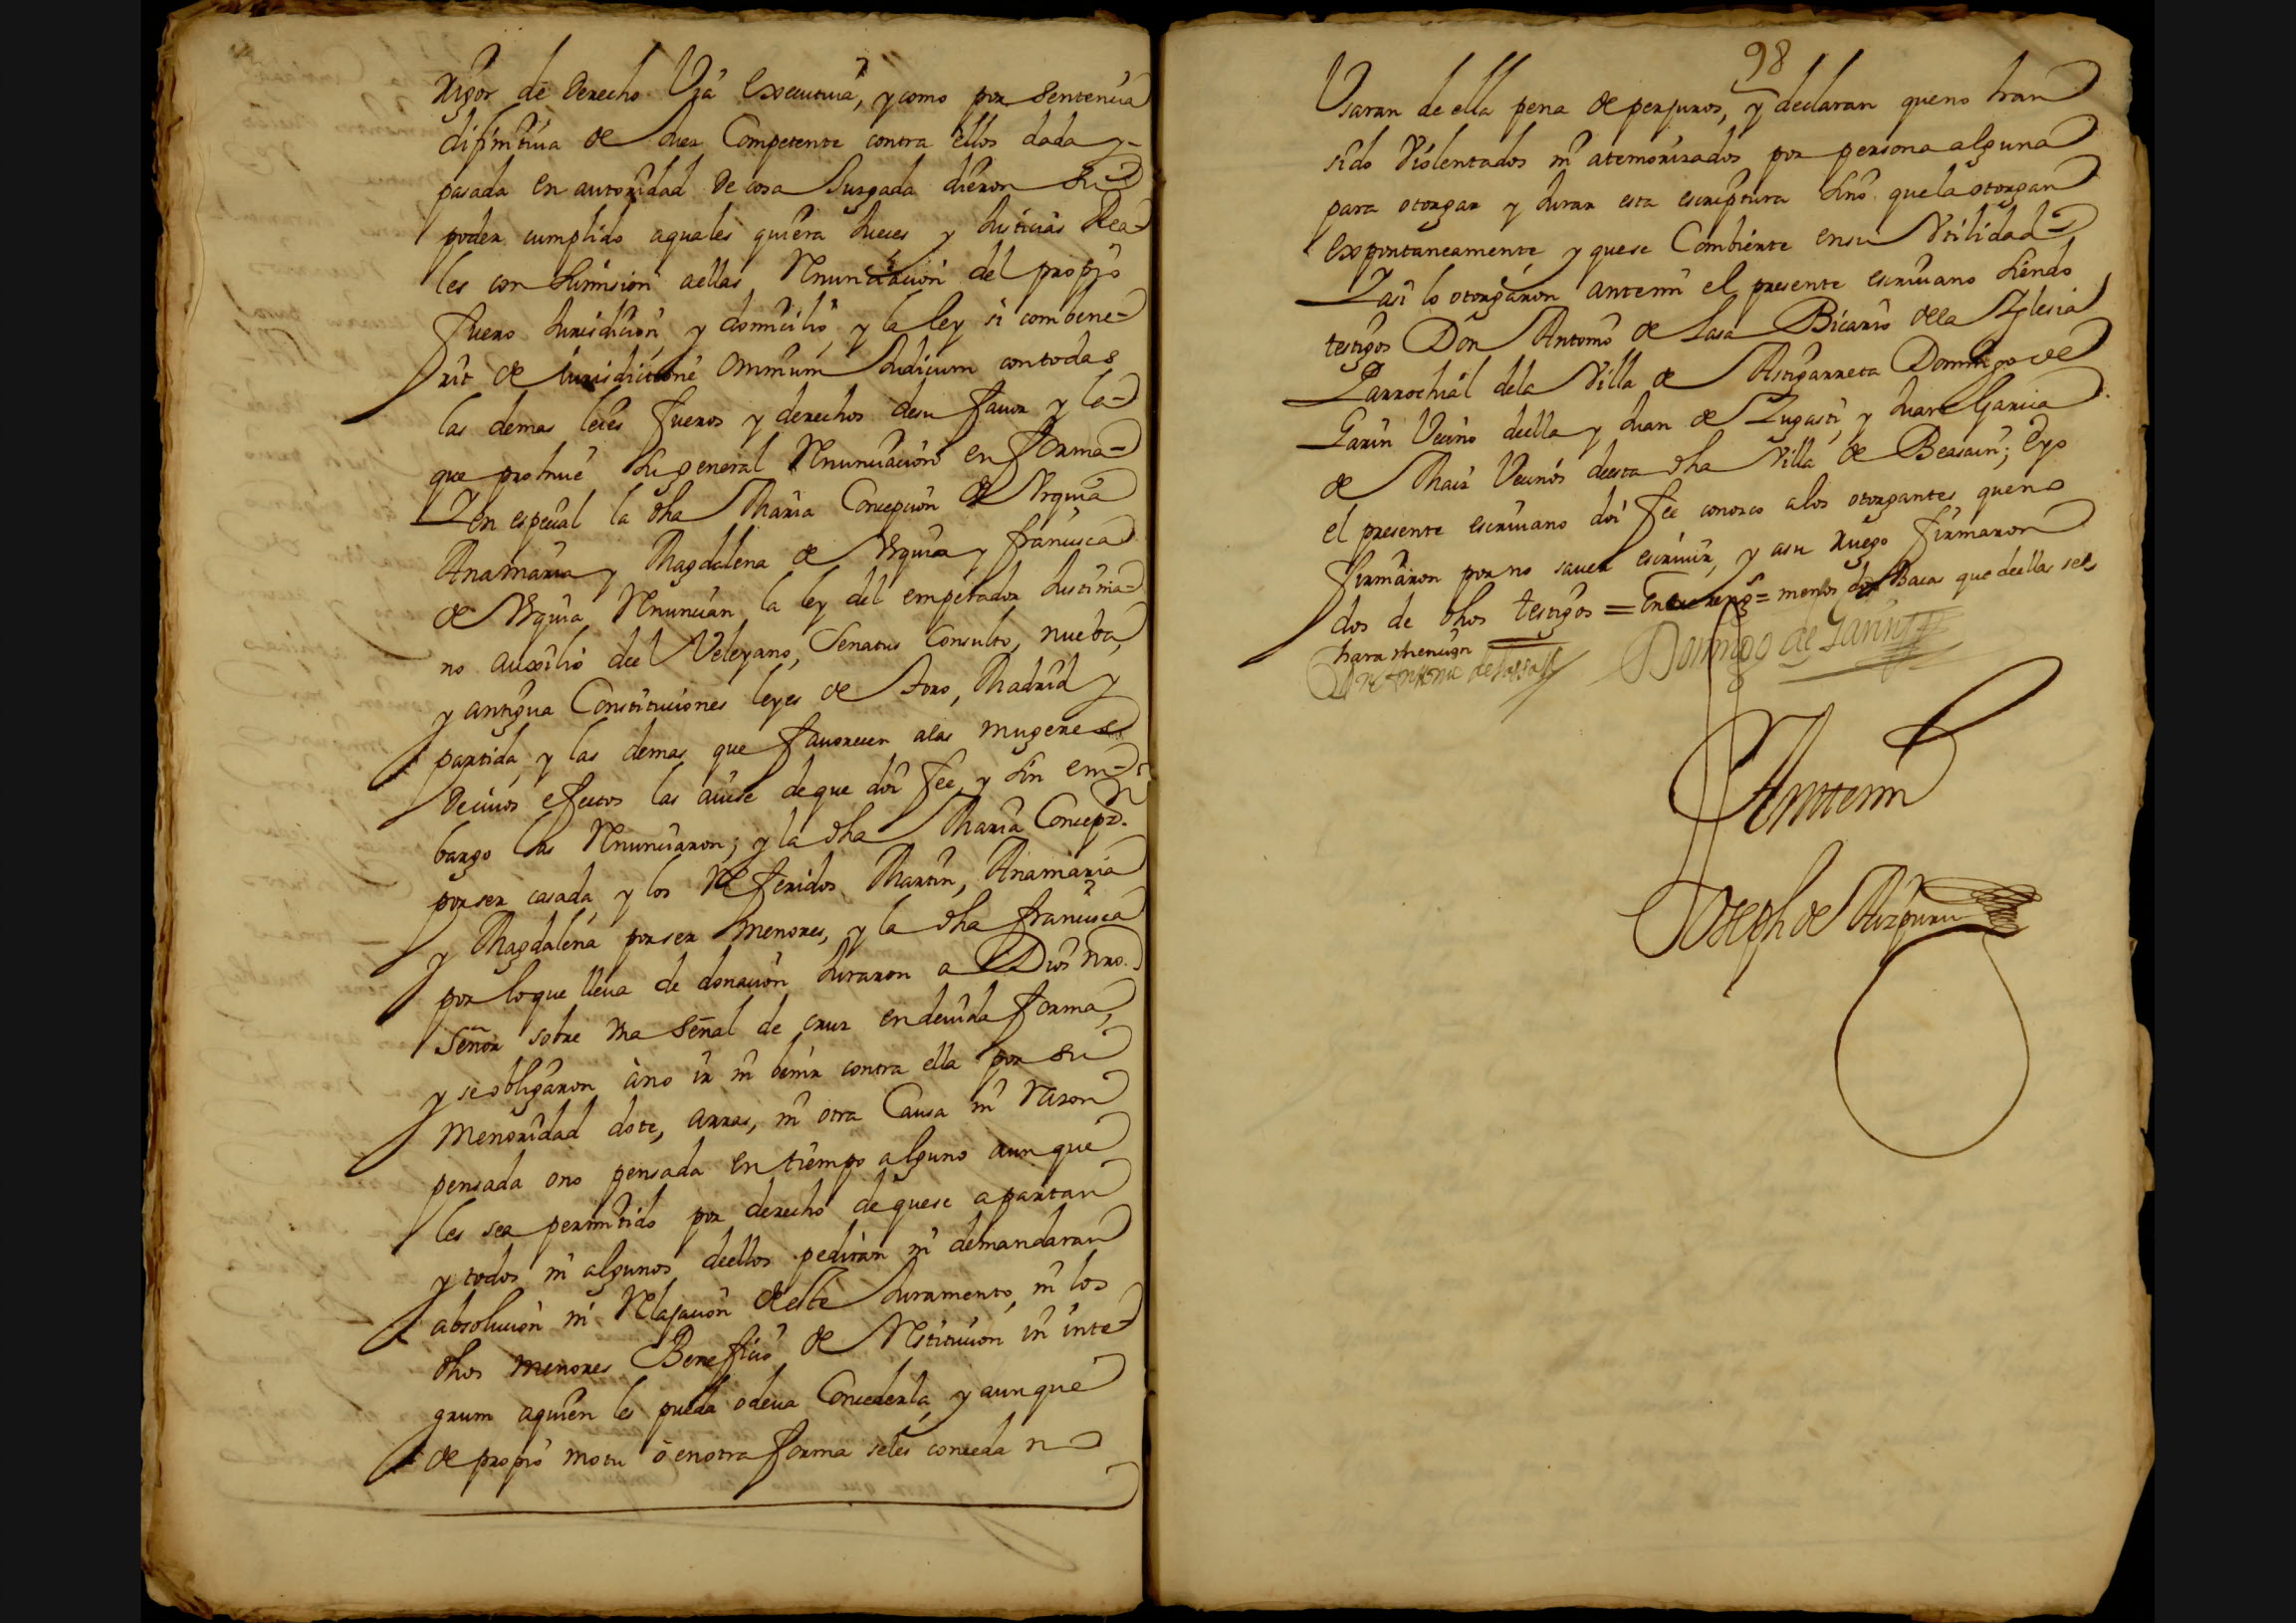 Rigor de derecho Via executiua, y como por sentencia
difinitiua de Juez Competente contra ellos dada y
pasada en autoridad de cosa Juzgada dieron su
poder cumplido aquales quiera Jueces y Justicias Rea-
les con sumision aellas Renunciacion del propio
fuero Jurisdicion, y domicilio, y la ley si combene-
rit de Jurisdictione Omnium Judicum con todas
las demas leies fueros y derechos de su fauor y la
que prohiue la general Renunciacion en forma=
Y en especial la dha Maria Concepcion de Vrquia
Anamaria y Magdalena de Vrquia y francisca
de Vrquia Renuncian la ley del emperador Justinia-
no auxilio del Veleyano, Senatus Consulto, nueba,
y antigua Constituciones leyes de Toro, Madrid y
partida, y las demas que fauorecen alas mugeres
de cuios efectos las auise de que doi fee, y sin em-
bargo las Renunciaron; y la dha Maria Concepon.
por ser casada, y los Referidos Martin, Anamaria
y Magdalena por ser menores, y la dha francisca
por lo que lleua de donacion Juraron a Dios nro.
Señor sobre vna señal de cruz en deuida forma,
y se obligaron àno ir ni benir contra ella por su
menoridad dote, arras, ni otra Causa ni razon
pensada ono pensada en tiempo alguno aunque
les sea permitido por derecho de que se apartan
y todos ni algunos dellos pediran ni demandaran
absolucion ni Relajacion deste Juramento, ni los
dhos menores Beneficio de Restitucion in inte-
grum aquien les pueda odeua Concederla, y aunque
de propio motu ò en otra forma seles conceda no
98
Vsaran de ella pena de perjuros, y declaran queno han
sido violentados ni atemorizados por persona alguna
para otorgar y Jurar esta escriptura sino que la otorgan
expontaneamente, y quese Combierte en su Vtilidad
Y asi lo otorgaron antemi el presente escriuano siendo
testigos Don Antonio de Lasa Bicario dela Yglesia
Parrochial dela Villa de Astigarreta Domingo de
Garin Vecino della y Juan de Zugasti, y Juan Garcia
de Maiz Vecinos desta dha Villa de Beasain; Eyo
el presente escriuano doi fee conozco alos otorgantes que no
firmaron por no sauer escriuir, y asu ruego firmaron
dos de dhos testigos = Entrerengs= menos dos Bacas que dellas sele
hara mencion
Dn Antonio de Lassa
Domingo de Garin
Anttemi
Joseph de Aizpuru